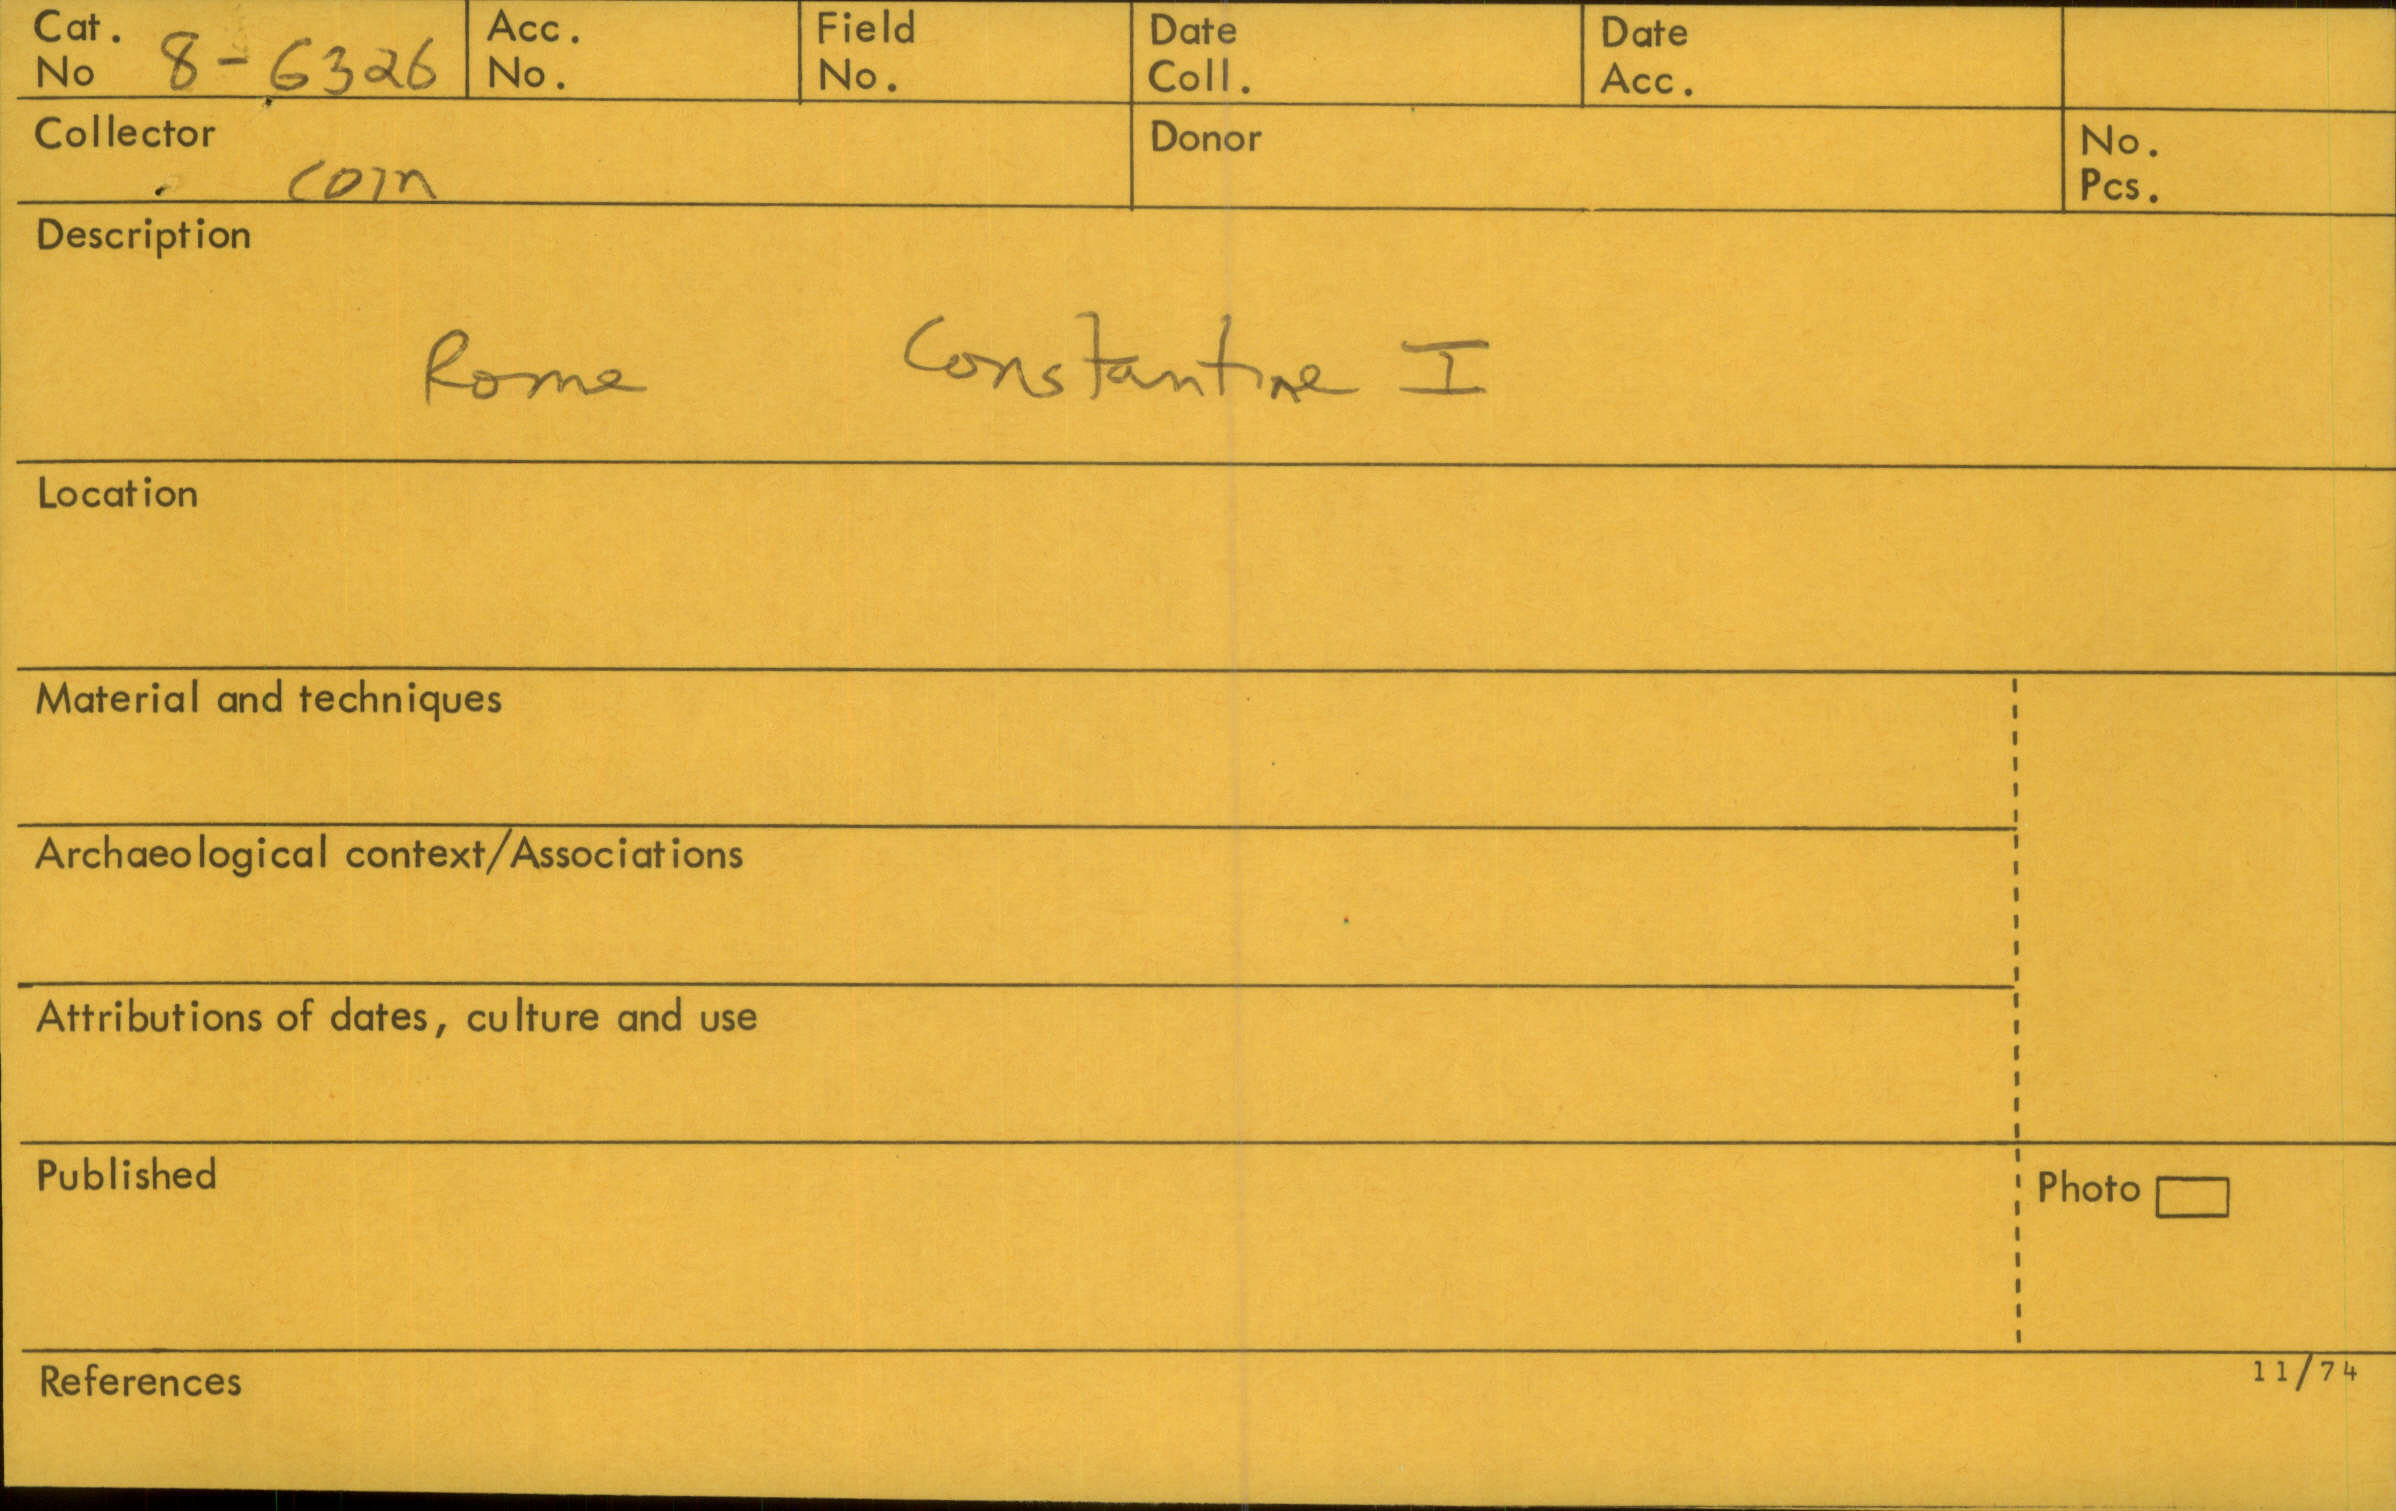 Cat. No 8-6326 Acc. No. Field No. Date Coll. Date Acc.
Collector Donor No. Pcs.
coin
Description
Rome Constantine I
Location
Material and techniques
Archaeological context/Associations
Attributions of dates, culture and use
Published Photo
References 11/74